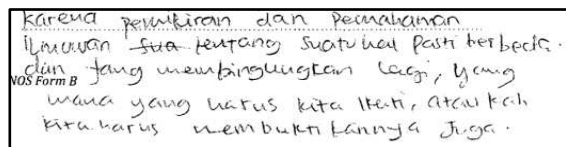 karena pemikiran dan pemahaman
ilmuwan sua tentang suatu hal pasti berbeda.
dan yang membingungkan lagi, yang
NOS Form B
mana yang harus kita ikuti, ataukah
kita harus membuktikannya juga.